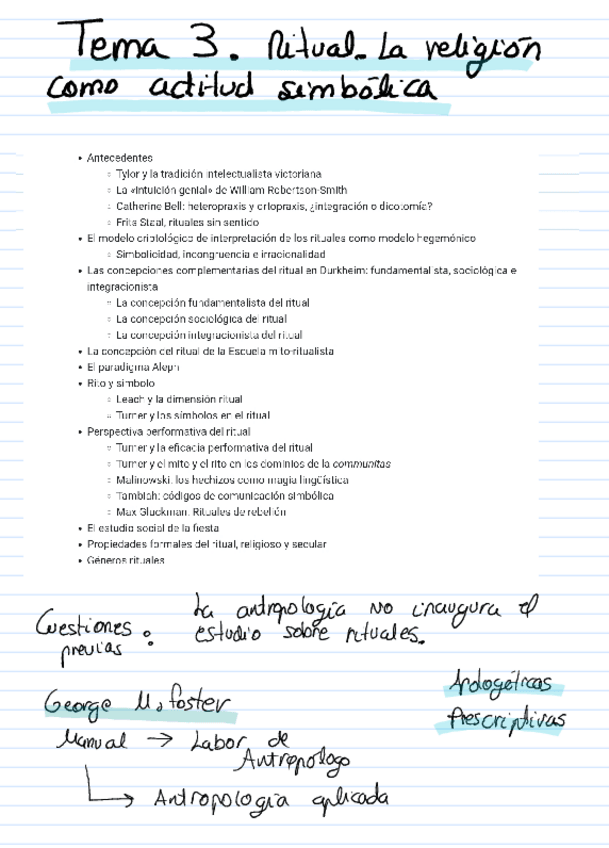 Tema 3. Ritual. La religión
como actitud simbólica
• Antecedentes
◦ Tylor y la tradición intelectualista victoriana
◦ La «intuición genial» de William Robertson-Smith
◦ Catherine Bell: heteropraxis y ortopraxis, ¿integración o dicotomía?
◦ Frits Staal, rituales sin sentido
• El modelo criptológico de interpretación de los rituales como modelo hegemónico
◦ Simbolicidad, incongruencia e irracionalidad
• Las concepciones complementarias del ritual en Durkheim: fundamentalista, sociológica e
integracionista
◦ La concepción fundamentalista del ritual
◦ La concepción sociológica del ritual
◦ La concepción integracionista del ritual
• La concepción del ritual de la Escuela mito-ritualista
• El paradigma Aleph
• Rito y símbolo
◦ Leach y la dimensión ritual
◦ Turner y los símbolos en el ritual
• Perspectiva performativa del ritual
◦ Turner y la eficacia performativa del ritual
◦ Turner y el mito y el rito en los dominios de la communitas
◦ Malinowski: los hechizos como magia lingüística
◦ Tambiah: códigos de comunicación simbólica
◦ Max Gluckman: Rituales de rebelión
• El estudio social de la fiesta
• Propiedades formales del ritual, religioso y secular
• Géneros rituales
Cuestiones previas:
La antropología no inaugura el
estudio sobre rituales.
George M. Foster
Manual → Labor de
Antropólogo
Antropología aplicada
Apologéticas
Prescriptivas